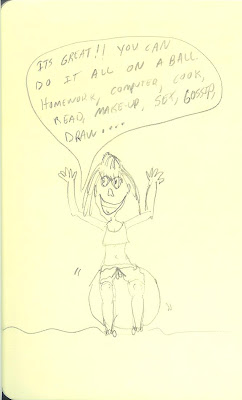 ITS GREAT!! YOU CAN
DO IT ALL ON A BALL
HOMEWORK, COMPUTER, COOK,
READ, MAKE-UP, SEX, GOSSIP,
DRAW....